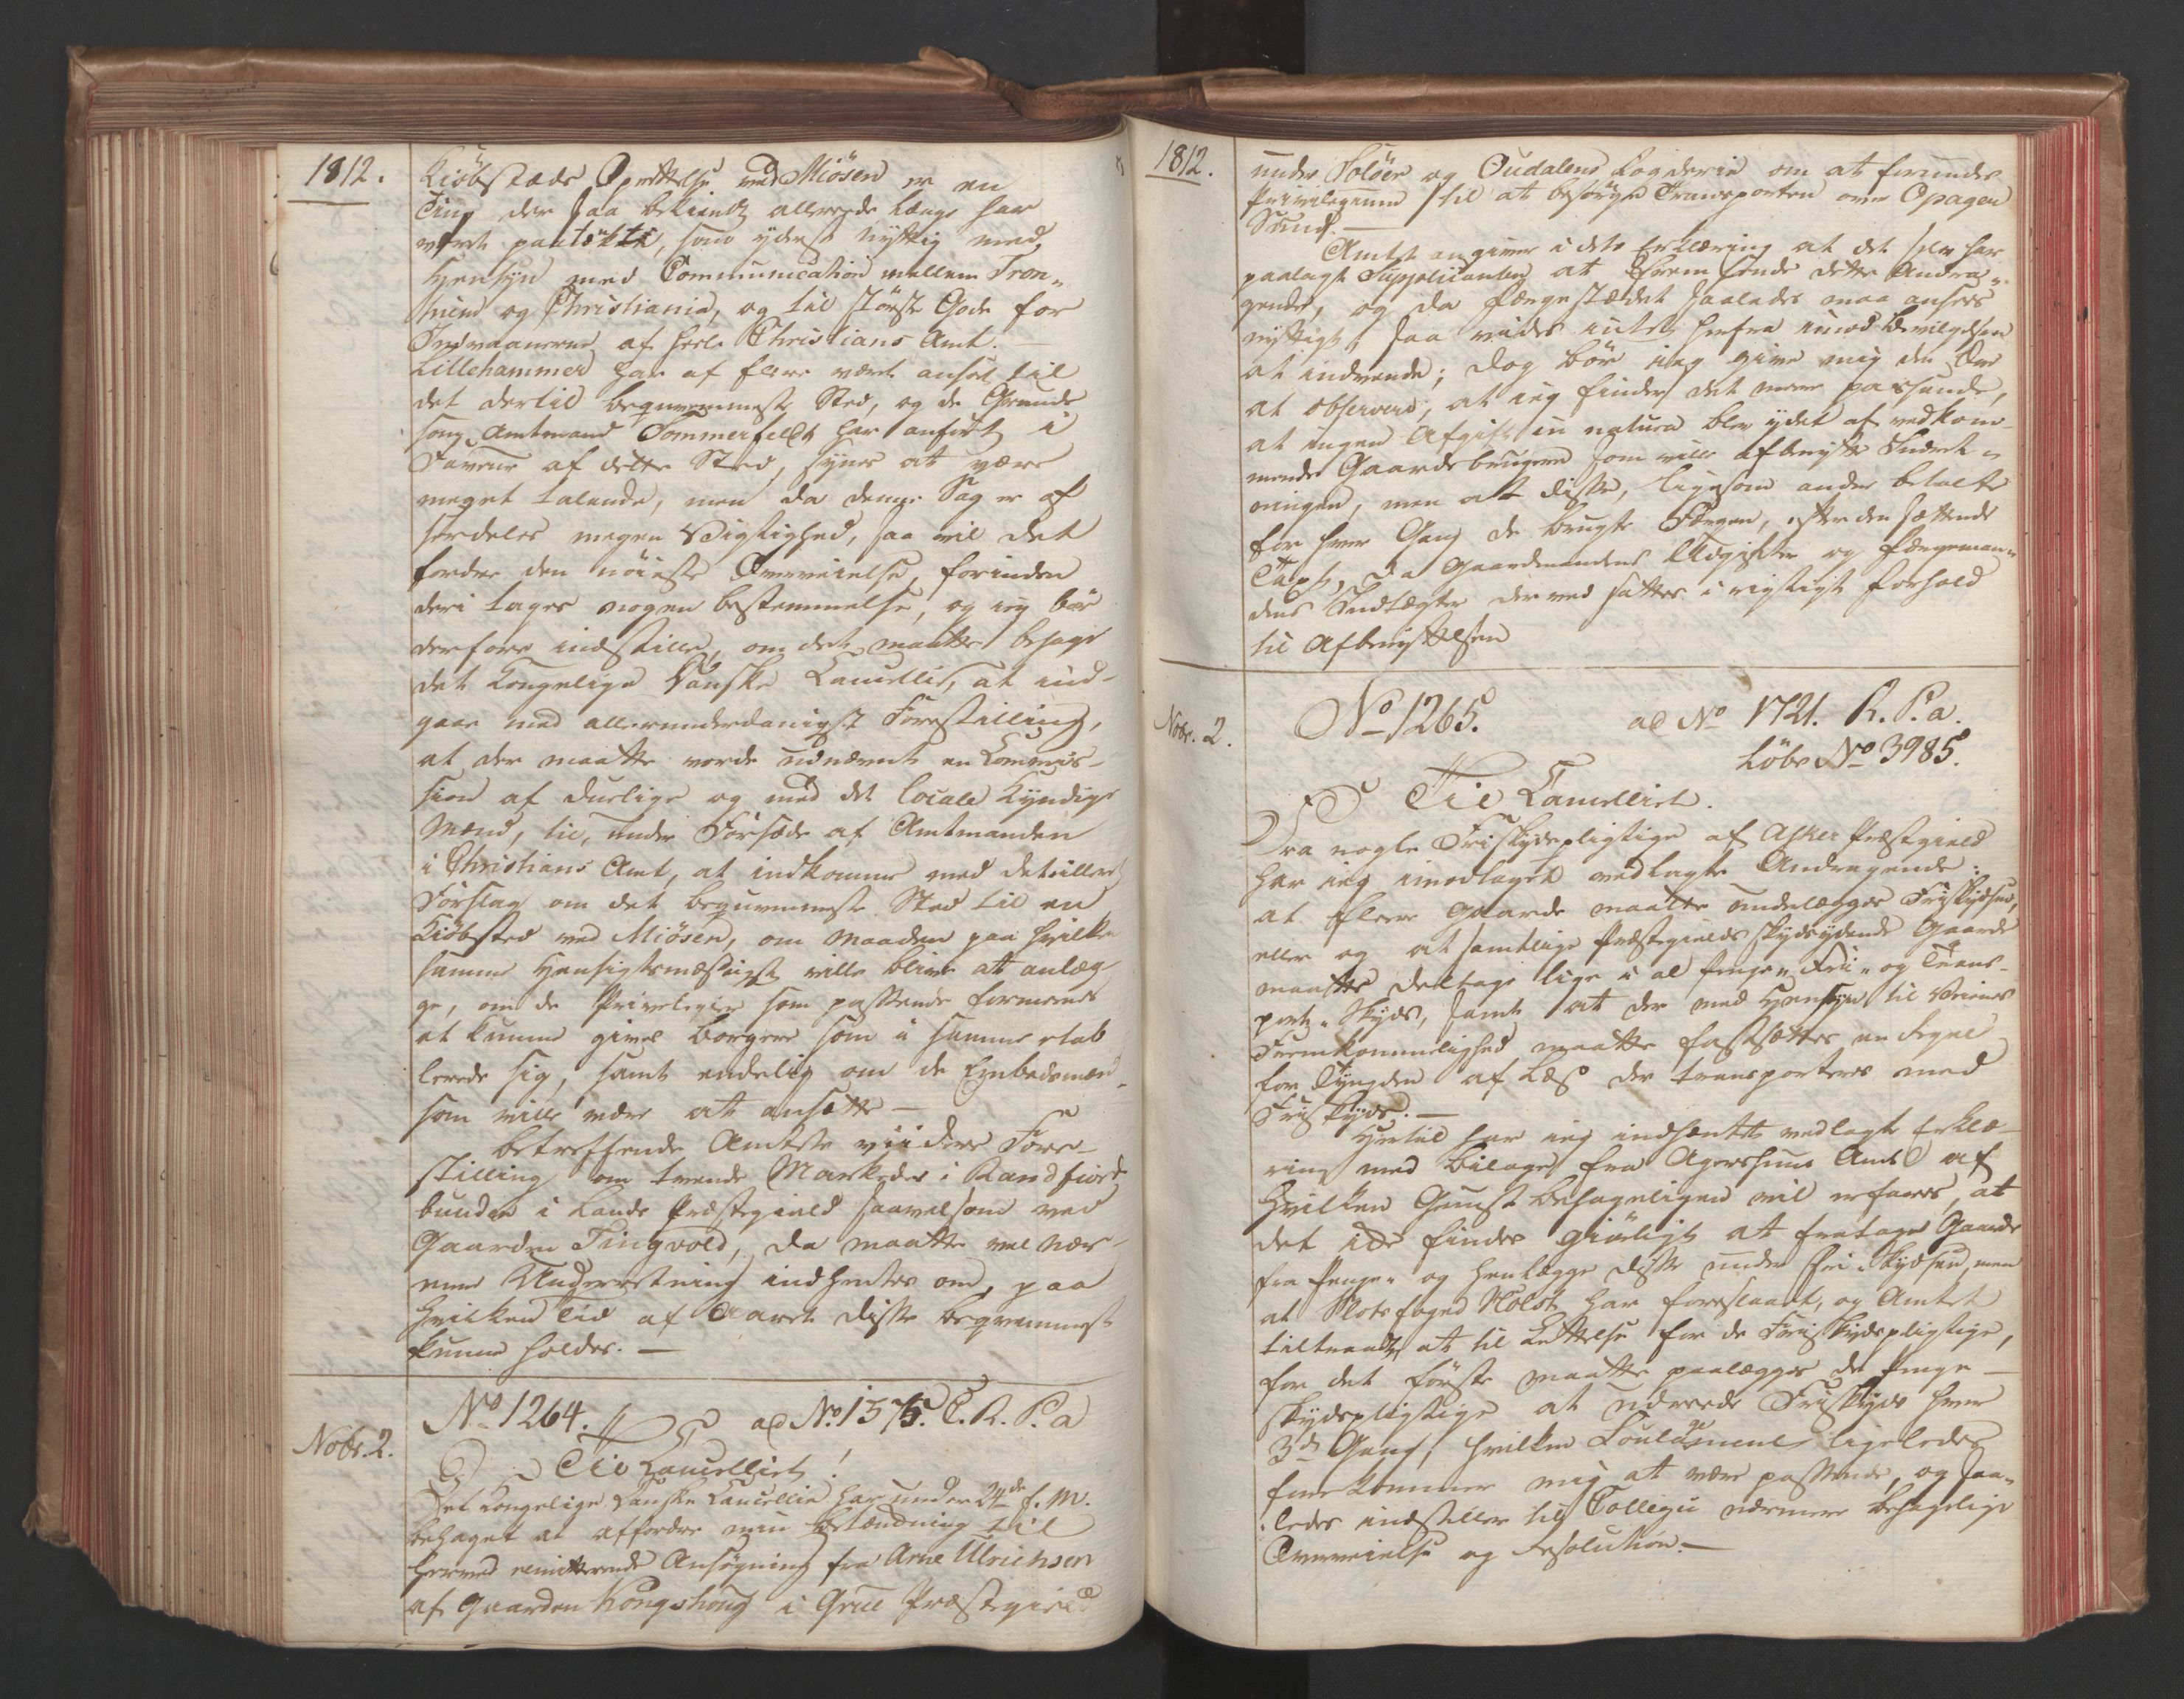 1812.
Kiöbstæds Oprettelse ved Miösen er en
Ting der saa bekiendt allerede længe har
været paatænkt, som yderst nyttig med
Hensyn med Communication mellem Tron-
hiem og Christiania, og til störste Gode for
Indvaanerne af heele Christians Amt. —
Lillehammer har af flere været anset til
det dertil beqvemmeste Sted, og de Grunde
som Amtmand Sommerfeldt har anført i
Faveur af dette Sted, synes at være
meget talende, men da denne Sag er af
særdeles megen Vigtighed, saa vil det
fordre den nöieste Overveielse, forinden
deri tages nogen bestemmelse, og ieg bör
derfore indstille, om det maatte behage
det Kongelige Danske Cancellie, at ind-
gaae med allerunderdanigst Forestilling,
at der maatte vorde udnævnt en Commis-
sion af duelige og med det locale kyndige
Mænd, til, under Forsæde af Amtmanden
i Christians Amt, at indkomme med detailleret
Forslag om det beqvemmeste Sted til en
Kiöbsted ved Miösen, om Maaden paa hvilken
samme Hensigtsmæssigst ville blive at anlæg-
ge, om de Privelegier som passende formeenes
at kunne gives Borgere som i samme etab
lerede sig, samt endelig om de Embedsmænd
som ville være at ansætte —
Betreffende Amtets viidere Fore-
stilling om tvende Markeder i Randfiord
bunden i Lands Præstegield saavelsom ved
Gaarden Tingvold, da maatte vel nær-
mere Underretning indhentes om, paa
hvilken Tid af Aaret disse beqvemmest
kunne holdes. —
Nobr. 2.
No 1264. ad No 1575. C. R. P. a
Til Cancelliet!
Det Kongelige Danske Cancellie har under 24de f. M.
behaget at affordre min Betænkning til
herved remitterende Ansögning fra Arne Ulrichsen
af Gaarden Kongshoug i Grue Præstegield
1812.
under Solöer og Oudalens Fogderie om at forundes
Privilegium til at besörge Transporten over Opagen
Sund. —
Amtet angiver i dets Erklæring at det selv har
paalagt Supplicanten at fremsende dette Andra-
gende, og da Færgestædet saaledes maa ansees
nyttigt, saa vides intet herfra imod Bevilgelsen
at indvende; dog bör ieg give mig den Ære
at observere, at ieg finder det mere passende,
at ingen Afgift in natura blev ydet af vedkom-
mende Gaardebrugere som ville afbenytte Indret-
ningen, men at disse, ligesom andre betalte
for hver Gang de brugte Færgen, efter den sættende
Taxt, da Gaardmændens Udgifter og Færgeman-
dens Indtægter derved sættes i rigtigt forhold
til Afbenyttelsen
Nobr. 2.
No 1265. ad No 1721. R. P. a.
Löbe No 3985.
Til Cancelliet.
Fra nogle Friskydspligtige af Asker Præstegield
har ieg imodtaget vedlagte Andragende:
at flere Gaarde maatte underlægges Friskydsen,
eller og at samtlige Præstegields skydsydende Gaarde
maatte deeltage lige i al Penge- Frie- og Trans-
port- Skyds, samt at der med Hensyn til Veienes
Fremkommelighed maatte fastsættes en Regel
for Tyngden af Læs der transporteres med
Friskyds. —
Hertil har ieg indhentet vedlagte Erklæ-
ring med bilager fra Agershuus Amt af
hvilken Gunst behageligen vil erfares, at
det ikke findes giörligt at fratage Gaarde
fra Penge- og henlægge disse under Fri-Skydsen, men
at Slotsfoged Holst har foreslaaet, og Amtet
tiltraadt, at til Lettelse for de Friskydspligtige,
for det förste maatte paalægges de Penge-
skydspligtige at udreede Friskyds hver
3de Gang; hvilken Soulagement ligeledes
forekommer mig at være passende, og saa-
ledes indstiller til Collegii nærmere behagelige
Overveielse og Resolution. —